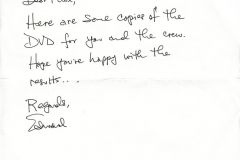 Here are some copies of the
DVD for you and the crew.
Hope you're happy with the
results...
Regards,
Edward